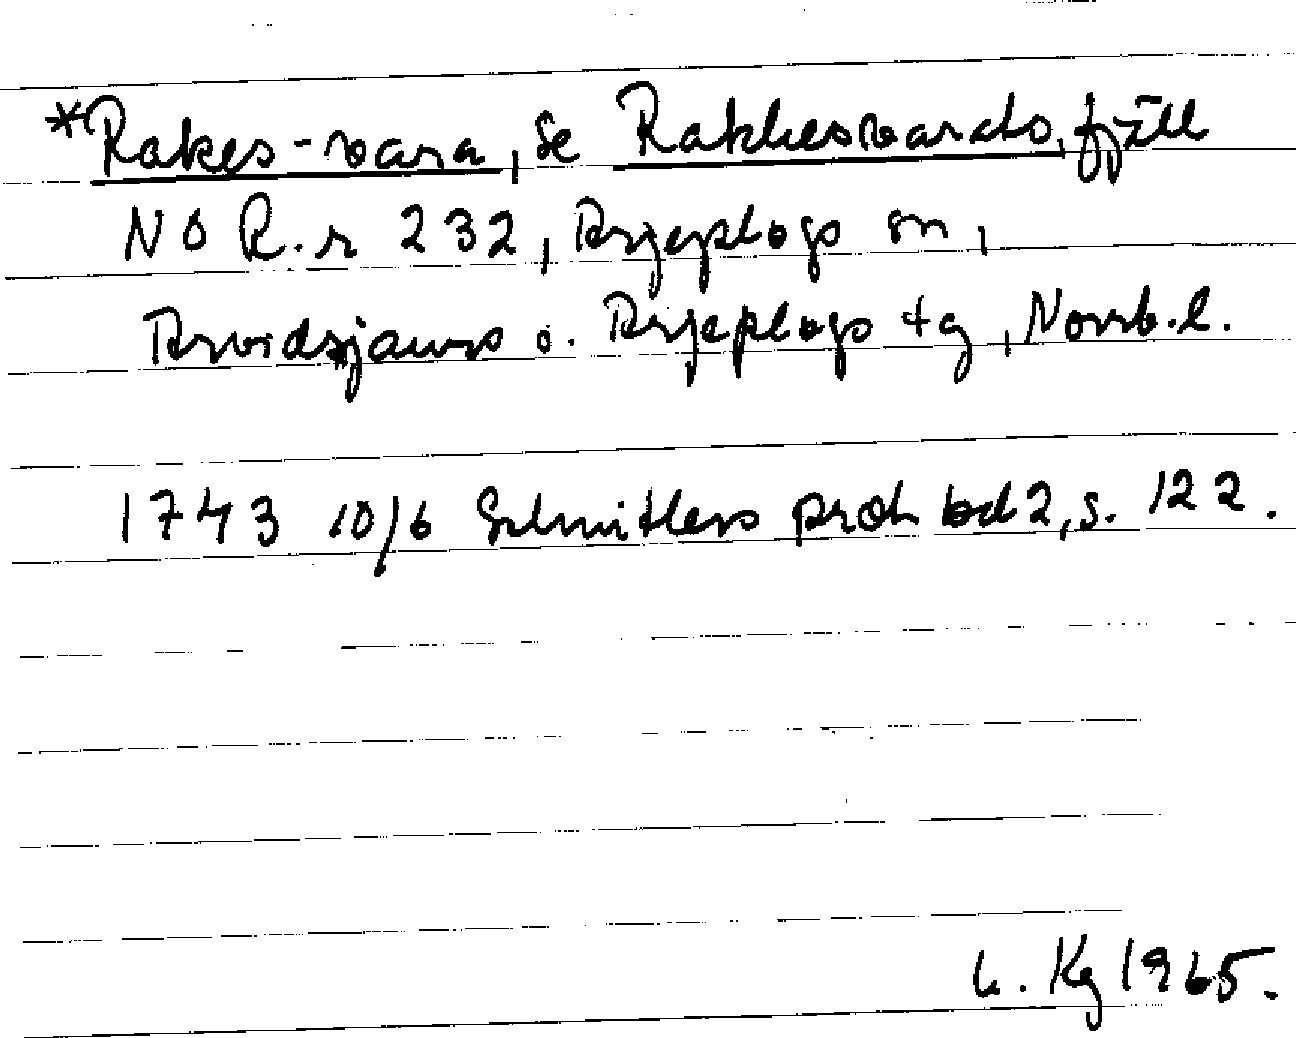 *Rakes-vara, se Rakkesvardo, fjäll
NO R.r 232, Arjeplogs sn,
Arvidsjaurs o. Arjeplogs tg, Norrb.l.
1743 10/6 Schnitlers prot. bd 2, s. 122.
Kg 1965.